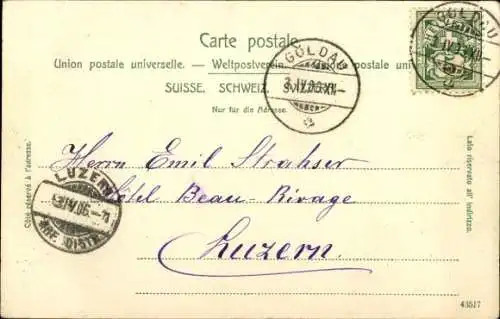 Carte postale.
Union postale universelle. — Weltpostverein. — postale uni
SUISSE. SCHWEIZ. SVIZZERA.
Nur für die Adresse.
GOLDAU
3.IV.06.XII—
GOLDAU
Côté réservé à l'adresse.
Lato riservato all' indirizzo.
Herrn Emil Strahser
Hôtel Beau-Rivage
Luzern.
LUZERN
3.IV.06.—
BRF. DISTR.
43517